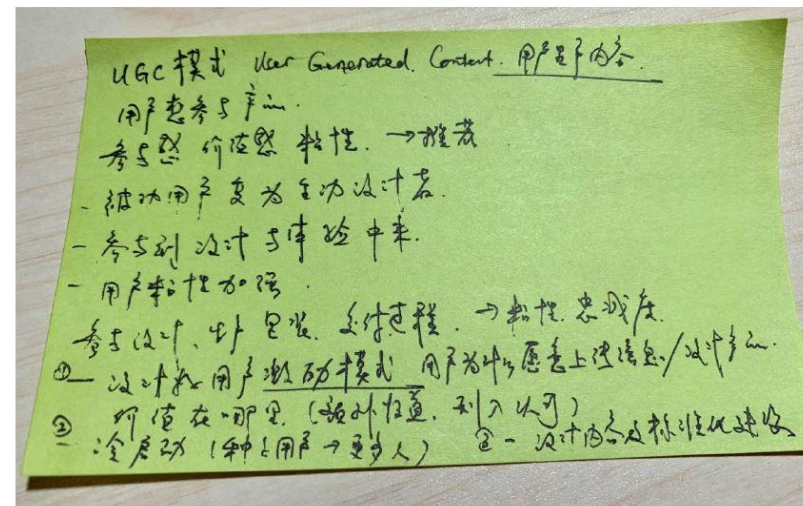 UGC模式 User Generated. Content. 用户生产内容.
用户想参与产品.
参与感 价值感 粘性. →推荐
- 被动用户变为主动设计者.
- 参与到设计与体验中来.
- 用户粘性加强.
参与设计、生产 包装. 交付过程. →粘性. 忠诚度.
①- 设计好用户激励模式 用户为什么愿意上传信息/设计产品.
价值在哪里. (额外收益. 别人认可)
②- 冷启动 (种子用户→更多人) ③- 设计内容及标准化建设